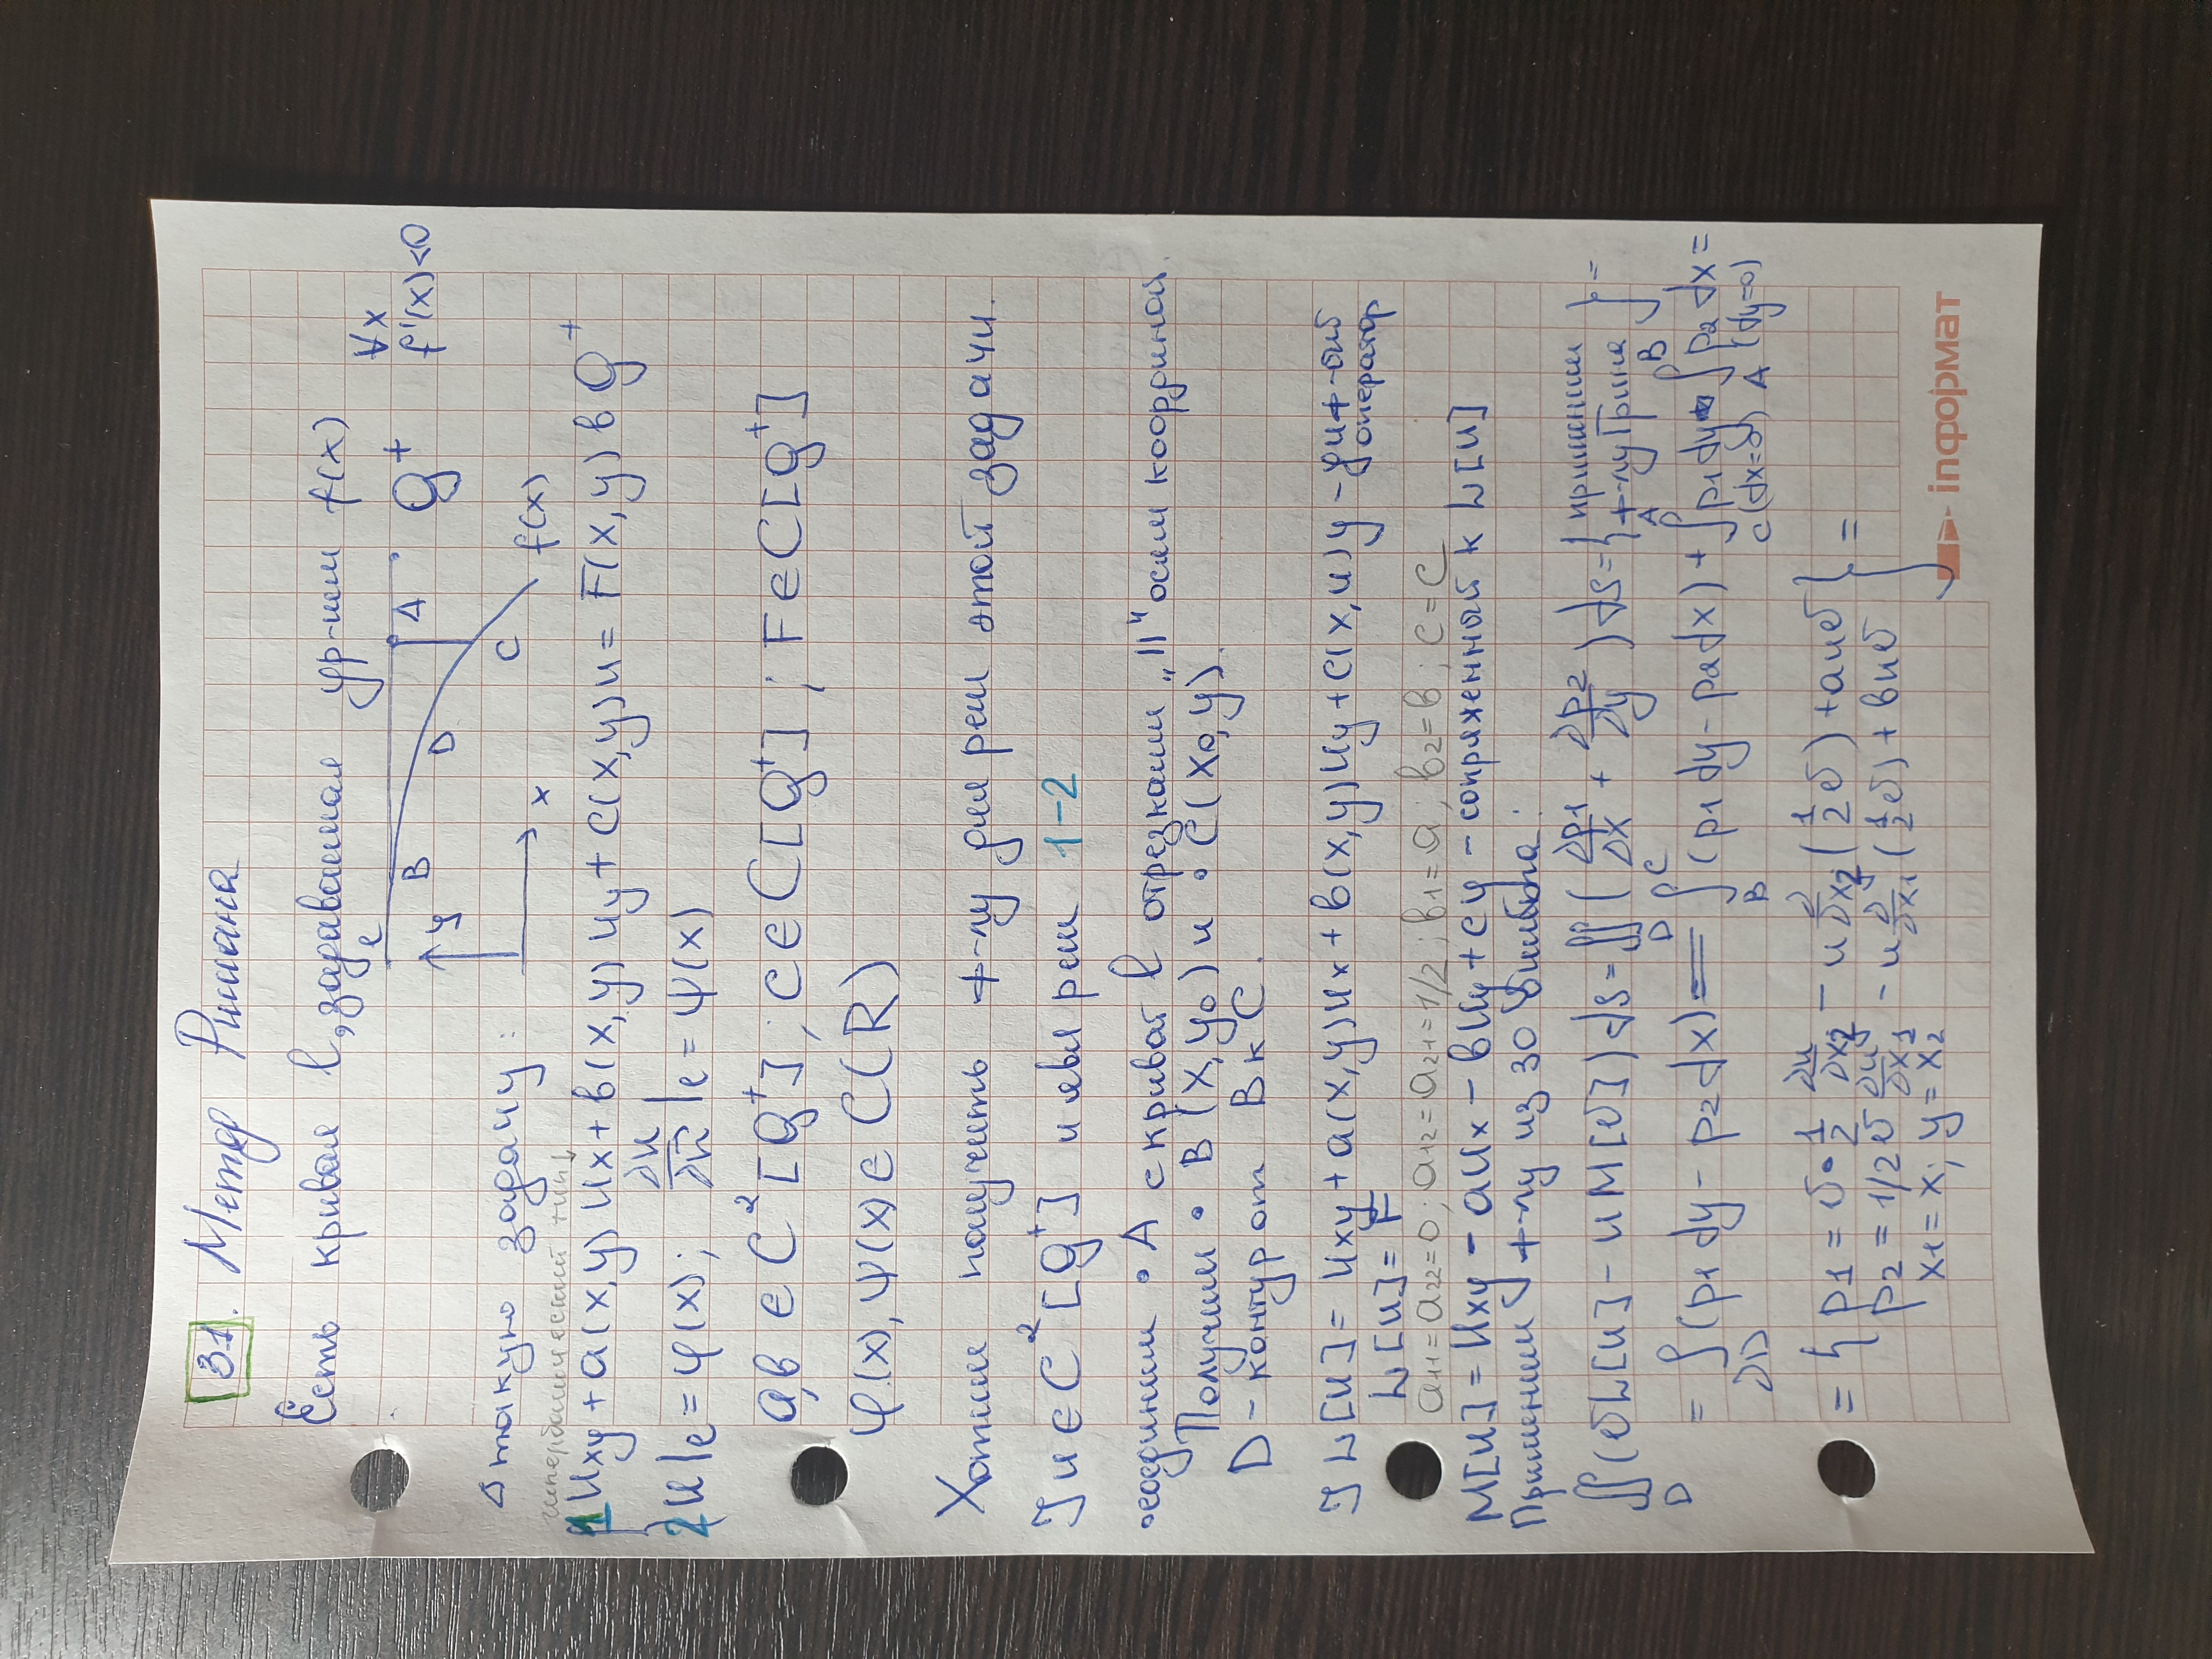 31. Метод Римана
Есть кривая l, задаваемая ур-нием f(x)
∀x
f'(x)<0
l
B
D
A
C
g⁺
y
x
f(x)
△ такую задачу:
гиперболический тип↓
1 Uxy + a(x,y) Ux + b(x,y) Uy + C(x,y)u = F(x,y) в g⁺
2 u|e = φ(x); ∂u/∂n |e = ψ(x)
a,b ∈ C² [g⁺]; C ∈ C[g⁺]; F ∈ C[g⁺]
φ(x), ψ(x) ∈ C(R)
Хотим получить ф-лу для реш этой задачи.
] u ∈ C² [g⁺] и явл реш 1-2
•соединим • A с кривой l отрезками "||" осям координат.
Получим • B (x, y₀) и • C(x₀, y).
D - контур от B к C.
] L[u] = Uxy + a(x,y)Ux + b(x,y)Uy + C(x,u)y - диф-ый оператор
L[u] = F
a₁₁ = a₂₂ = 0; a₁₂ = a₂₁ = 1/2; b₁ = a; b₂ = b; c = C
M[u] = Uxy - aUx - bUy + cy - сопряженный к L[u]
Применим ф-лу из 30 билета:
∬D (υL[u] - uM[υ]) ds = ∬D (∂p1/∂x + ∂p2/∂y) ds = {применим ф-лу Грина} =
= ∫∂D (p1 dy - p2 dx) = ∫B C (p1 dy - p2 dx) + ∫C A p1 dy + ∫A B p2 dx =
(dx=0) (dy=0)
= { p1 = υ • 1/2 ∂u/∂x2 - u ∂/∂x2 (1/2 υ) + auυ
p2 = 1/2 υ ∂u/∂x1 - u ∂/∂x1 (1/2 υ) + buυ } =
x1 = x; y = x2
inформат